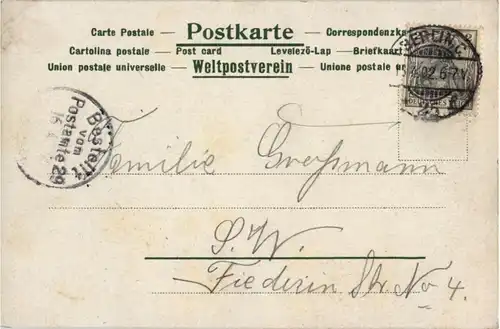 Carte Postale — Postkarte — Correspondenzka
Cartolina postale — Post card — Levelező-Lap — Briefkaart
Union postale universelle — Weltpostverein — Unione postale
BERLIN C.
02. 6-7
Bestellt
vom
Postamte 29
Familie
S. W.
Str. No 4.